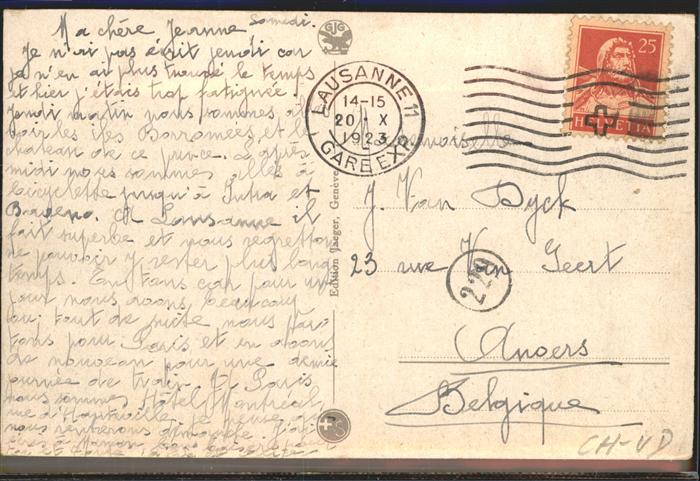 Samedi.
Ma chère Jeanne
Je n'ai pas écrit jeudi car
je n'en ai plus trouvé le temps
et hier j'étais trop fatiguée.
Jeudi matin nous sommes al
voir les îles Borromées et le
château de ce prince. L'après
midi nous sommes allés à
bicyclette jusqu'à Intra et
Baveno. A Lausanne il
fait superbe et nous regrettons
ne pouvoir y rester plus long
temps. Enfants car pour un
jour nous avons beaucoup
vu. Tout de suite nous par
tons pour Paris et en avons
de nouveau pour une demie
journée de train. A Paris
nous sommes Hôtel Montréal
rue d'Hauteville. Je pense que
nous rentrerons dimanche
GJG
Edition Jaeger, Genève
LAUSANNE 11
14-15
20 X
1923
GARE EXP.
25
HELVETIA
Mademoiselle
J. Van Dyck
23 rue Van Geert
229
Anvers
Belgique
CH-VD